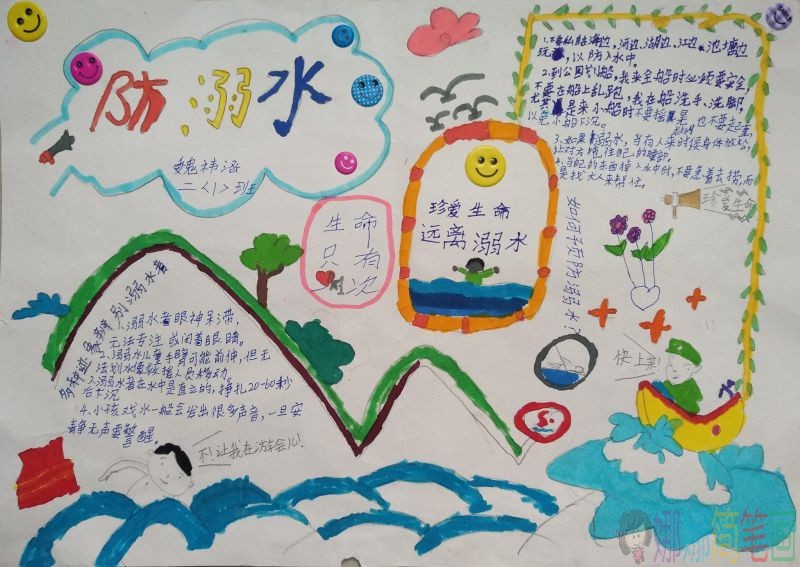 防溺水
魏祎涵
二〈1〉班
1.不要私自站海边，河边、湖边、江边、池塘边
玩，以防入水中。
2.到公园划船，我来坐船时必须要安全，
不要在船上乱跑，我在船洗手、洗脚
尤其是来小船时不要摇晃，也不要超重，
以免小船下沉。
3.如果溺水，当有人来时候身体放松，
让对方拖住自己的腰部。
4.当自己的东西掉入水中时，不要急着去捞，而
是找大人来帮忙。
珍爱生命
如何预防溺水？
珍爱生命
远离溺水
生命
只有
一次
辨别溺水者
1.溺水者眼神呆滞，
无法专注或闭着眼睛。
2.溺水儿童手臂可能前伸，但无
法划水像救援人员移动。
3.溺水者在水中是直立的，挣扎20-60秒
后下沉
4.小孩戏水一般会发出很多声音，一旦安
静无声要警醒。
不！让我在游会儿！
快上来！
水
娜娜简笔画